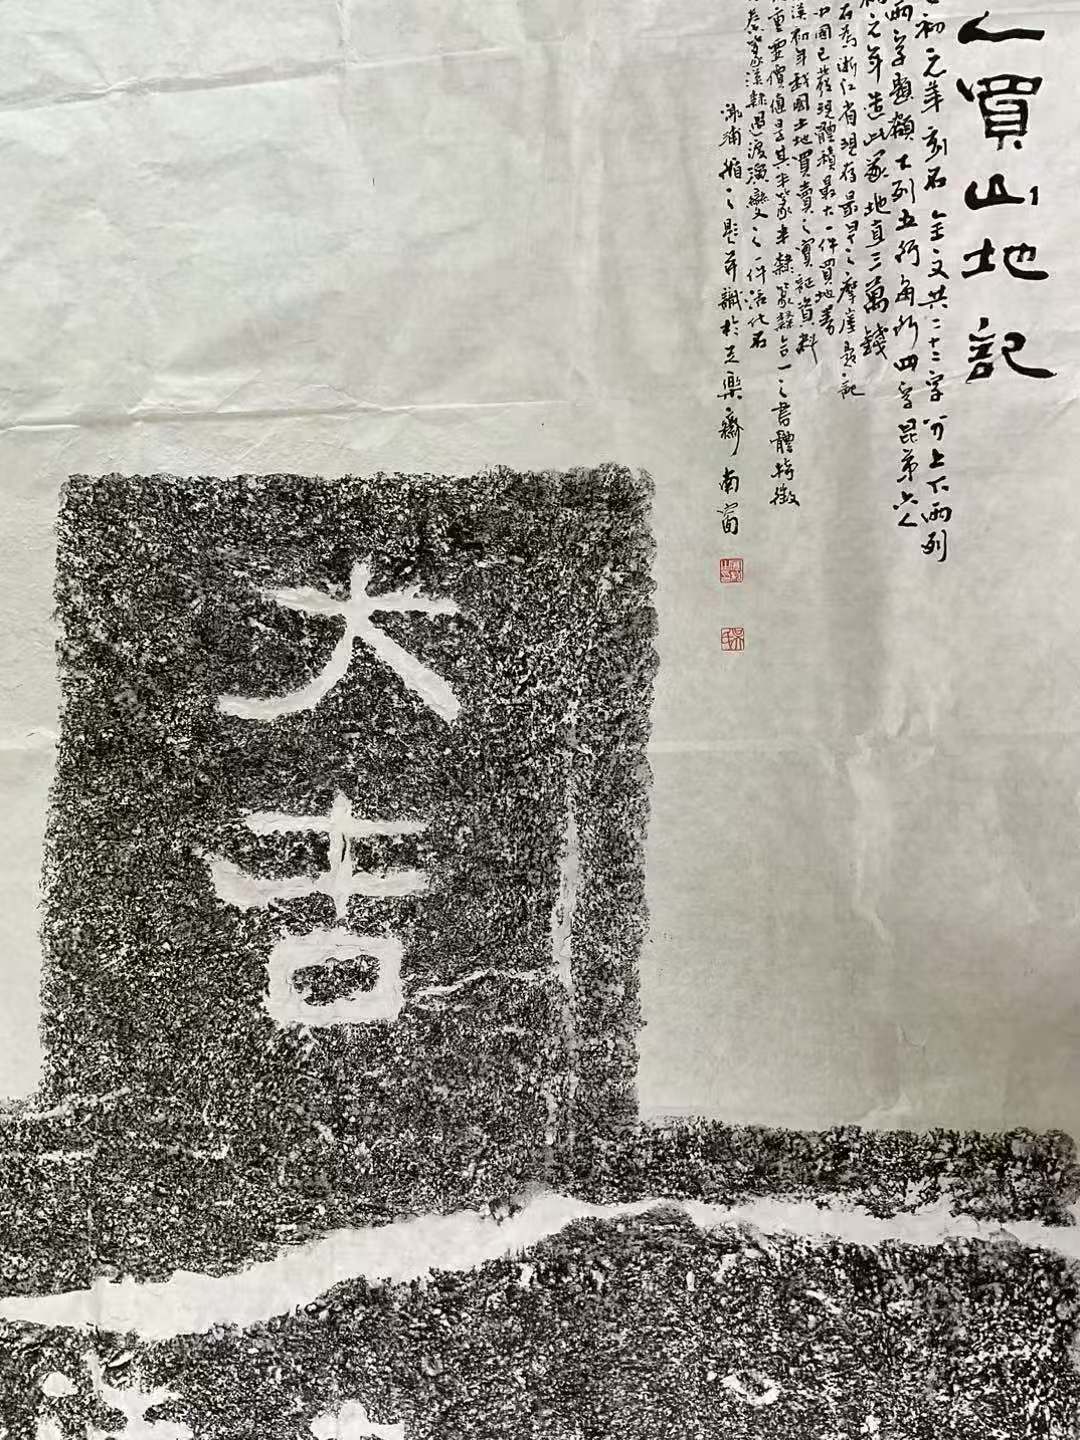 人買山地記
初元年刻石 全文共二十二字 分上下兩列
兩字題額 下列五行每行四字 昆弟六人
初元年造此冢地直三萬錢
石爲浙江省現存最早之摩崖題記
中國已發現體積最大一件買地券
漢初年我國土地買賣之實証資料
重要價值 其半篆半隸篆隸合一之書體特徵
秦篆漢隸過渡演變之一件活化石
題并識於 樂齋 南窗
大吉